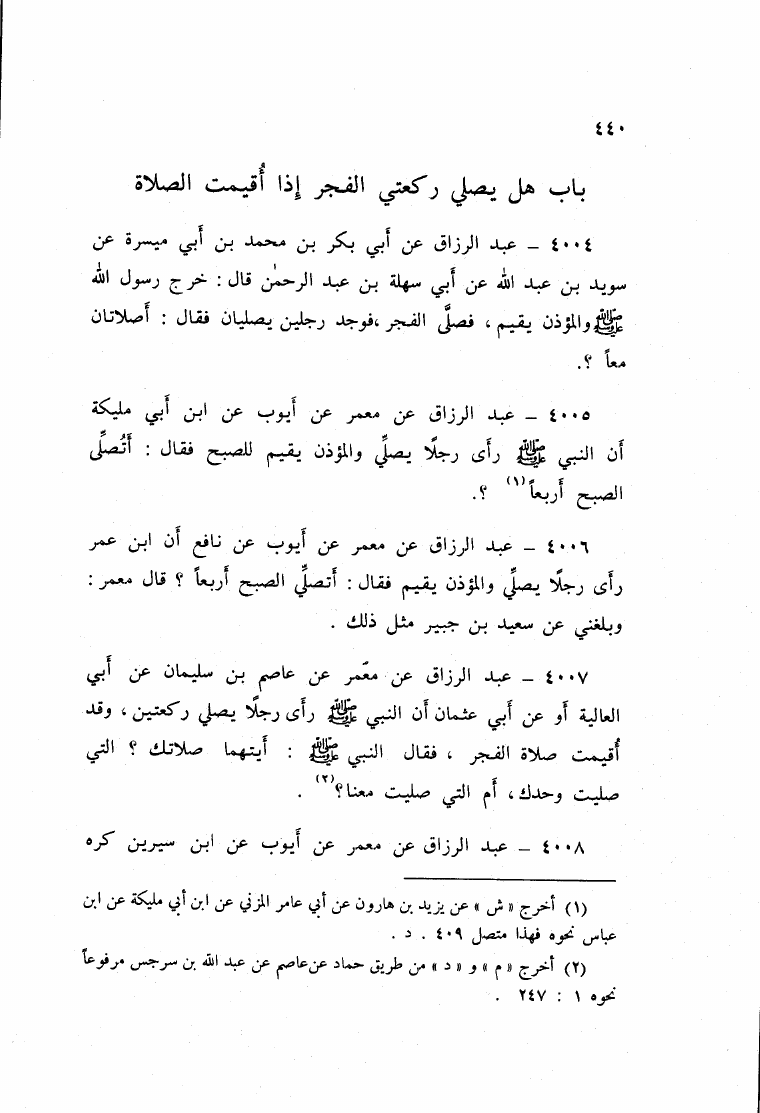 ٤٤٠
باب هل يصلي ركعتي الفجر إذا أُقيمت الصلاة
٤٠٠٤ – عبد الرزاق عن أبي بكر بن محمد بن أبي ميسرة عن
سويد بن عبد الله عن أبي سهلة بن عبد الرحمٰن قال : خرج رسول الله
ﷺ والمؤذن يقيم ، فصلَّى الفجر ،فوجد رجلين يصليان فقال : أصلاتان
معاً ؟.
٤٠٠٥ – عبد الرزاق عن معمر عن أيوب عن ابن أبي مليكة
أن النبي ﷺ رأى رجلًا يصلِّي والمؤذن يقيم للصبح فقال : أتُصلِّى
الصبح أربعاً(١) ؟.
٤٠٠٦ – عبد الرزاق عن معمر عن أيوب عن نافع أن ابن عمر
رأى رجلًا يصلِّي والمؤذن يقيم فقال : أتصلِّي الصبح أربعاً ؟ قال معمر :
وبلغني عن سعيد بن جبير مثل ذلك .
٤٠٠٧ – عبد الرزاق عن معمر عن عاصم بن سليمان عن أبي
العالية أو عن أبي عثمان أن النبي ﷺ رأى رجلًا يصلي ركعتين ، وقد
أُقيمت صلاة الفجر ، فقال النبي ﷺ : أيتهما صلاتك ؟ التي
صليت وحدك ، أم التي صليت معنا؟(٢) .
٤٠٠٨ – عبد الرزاق عن معمر عن أيوب عن ابن سيرين كره
(١) أخرج « ش » عن يزيد بن هارون عن أبي عامر المزني عن ابن أبي مليكة عن ابن
عباس نحوه فهذا متصل ٤٠٩ . د .
(٢) أخرج « م » و « د » من طريق حماد عن عاصم عن عبد الله بن سرجس مرفوعاً
نحوه ١ : ٢٤٧ .